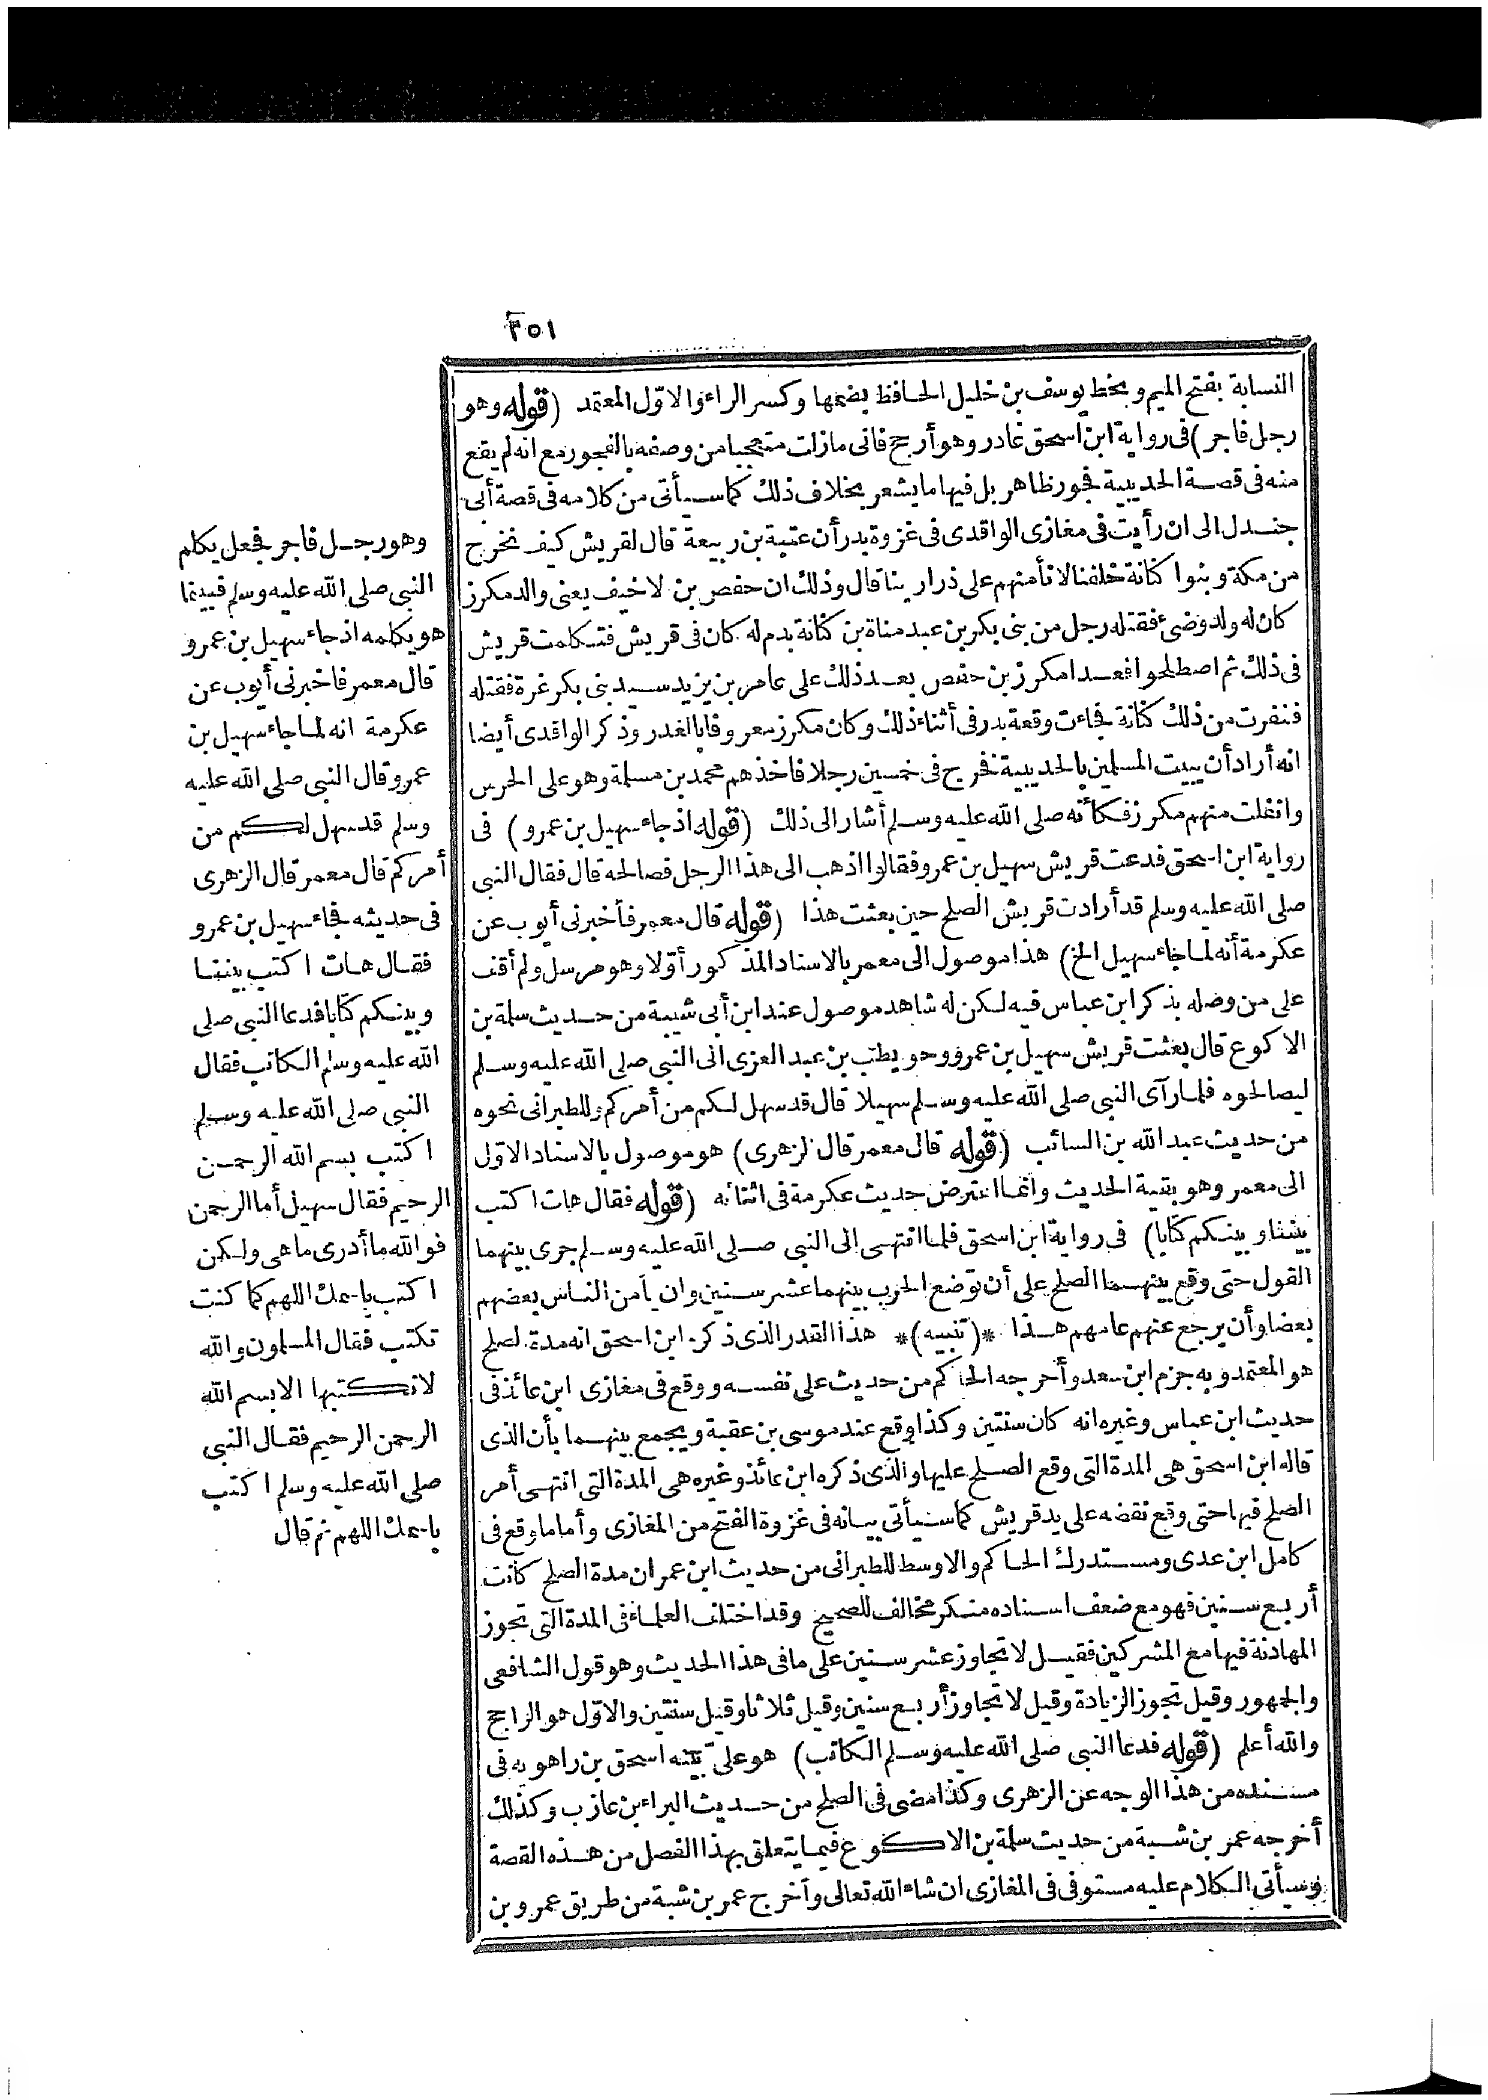 ٢٥١
النسابة بفتح الميم وبخط يوسف بن خليل الحافظ بضمها وكسر الراء والاول المعتمد (قوله وهو
رجل فاجر) فى رواية ابن اسحق غادر وهو أرجح فانى مازلت متعجبا من وصفه بالفجور مع انه لم يقع
منه فى قصة الحديبية فجور ظاهر بل فيها ما يشعر بخلاف ذلك كما سيأتى من كلامه فى قصة أبى
جندل الى ان رأيت فى مغازى الواقدى فى غزوة بدر أن عتبة بن ربيعة قال لقريش كيف نخرج
من مكة وبنوا كنانة خلفنا لا نأمنهم على ذرارينا قال وذلك ان حفص بن الاخيف يعنى والد مكرز
كان له ولد وضىء فقتله رجل من بنى بكر بن عبد مناة بن كنانة بدم له كان فى قريش فتكلمت قريش
فى ذلك ثم اصطلحوا فعدا مكرز بن حفص بعد ذلك على عامر بن يزيد سيد بنى بكر غرة فقتله
فنفرت من ذلك كنانة فجاءت وقعة بدر فى أثناء ذلك وكان مكرز معروفا بالغدر وذكر الواقدى أيضا
انه أراد أن يبيت المسلمين بالحديبية فخرج فى خمسين رجلا فاخذهم محمد بن مسلمة وهو على الحرس
وانفلت منهم مكرز فكأنه صلى الله عليه وسلم أشار الى ذلك (قوله اذ جاء سهيل بن عمرو) فى
رواية ابن اسحق فدعت قريش سهيل بن عمرو فقالوا اذهب الى هذا الرجل فصالحه قال فقال النبى
صلى الله عليه وسلم قد أرادت قريش الصلح حين بعثت هذا (قوله قال معمر فأخبرنى أيوب عن
عكرمة أنه لما جاء سهيل الخ) هذا موصول الى معمر بالاسناد المذكور أولا وهو مرسل ولم أقف
على من وصله بذكر ابن عباس فيه لكن له شاهد موصول عند ابن أبى شيبة من حديث سلمة بن
الاكوع قال بعثت قريش سهيل بن عمرو وحويطب بن عبد العزى الى النبى صلى الله عليه وسلم
ليصالحوه فلما رآى النبى صلى الله عليه وسلم سهيلا قال قد سهل لكم من أمركم وللطبرانى نحوه
من حديث عبد الله بن السائب (قوله قال معمر قال الزهرى) هو موصول بالاسناد الاول
الى معمر وهو بقية الحديث وانما اعترض حديث عكرمة فى اثنائه (قوله فقال هات اكتب
بيننا وبينكم كتابا) فى رواية ابن اسحق فلما انتهى الى النبى صلى الله عليه وسلم جرى بينهما
القول حتى وقع بينهما الصلح على أن توضع الحرب بينهما عشر سنين وان يأمن الناس بعضهم
بعضا وأن يرجع عنهم عامهم هذا *(تنبيه)* هذا القدر الذى ذكره ابن اسحق انه مدة الصلح
هو المعتمد وبه جزم ابن سعد وأخرجه الحاكم من حديث على نفسه ووقع فى مغازى ابن عائذ فى
حديث ابن عباس وغيره انه كان سنتين وكذا وقع عند موسى بن عقبة ويجمع بينهما بأن الذى
قاله ابن اسحق هى المدة التى وقع الصلح عليها والذى ذكره ابن عائذ وغيره هى المدة التى انتهى أمر
الصلح فيها حتى وقع نقضه على يد قريش كما سيأتى بيانه فى غزوة الفتح من المغازى وأما ما وقع فى
كامل ابن عدى ومستدرك الحاكم والاوسط للطبرانى من حديث ابن عمر ان مدة الصلح كانت
أربع سنين فهو مع ضعف اسناده منكر مخالف للصحيح وقد اختلف العلماء فى المدة التى تجوز
المهادنة فيها مع المشركين فقيل لا تجاوز عشر سنين على ما فى هذا الحديث وهو قول الشافعى
والجمهور وقيل تجوز الزيادة وقيل لا تجاوز أربع سنين وقيل ثلاثا وقيل سنتين والاول هو الراجح
والله أعلم (قوله فدعا النبى صلى الله عليه وسلم الكاتب) هو على بينه اسحق بن راهويه فى
مسنده من هذا الوجه عن الزهرى وكذا مضى فى الصلح من حديث البراء بن عازب وكذلك
أخرجه عمر بن شبة من حديث سلمة بن الاكوع فيما يتعلق بهذا الفصل من هذه القصة
وسيأتى الكلام عليه مستوفى فى المغازى ان شاء الله تعالى وأخرج عمر بن شبة من طريق عمرو بن
وهو رجل فاجر فجعل يكلم
النبى صلى الله عليه وسلم فبينما
هو يكلمه اذ جاء سهيل بن عمرو
قال معمر فاخبرنى أيوب عن
عكرمة انه لما جاء سهيل بن
عمرو قال النبى صلى الله عليه
وسلم قد سهل لكم من
أمركم قال معمر قال الزهرى
فى حديثه فجاء سهيل بن عمرو
فقال هات اكتب بيننا
وبينكم كتابا فدعا النبى صلى
الله عليه وسلم الكاتب فقال
النبى صلى الله عليه وسلم
اكتب بسم الله الرحمن
الرحيم فقال سهيل أما الرحمن
فوالله ما أدرى ما هى ولكن
اكتب باسمك اللهم كما كنت
تكتب فقال المسلمون والله
لا نكتبها الا بسم الله
الرحمن الرحيم فقال النبى
صلى الله عليه وسلم اكتب
باسمك اللهم ثم قال